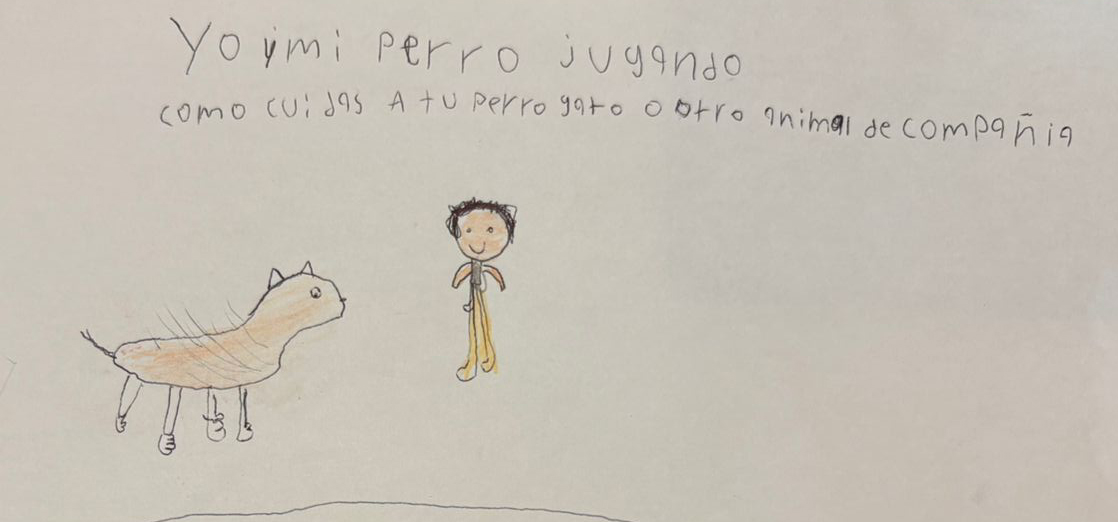 Yo y mi perro jugando
como cuidas A tu perro gato o otro animal de compañia